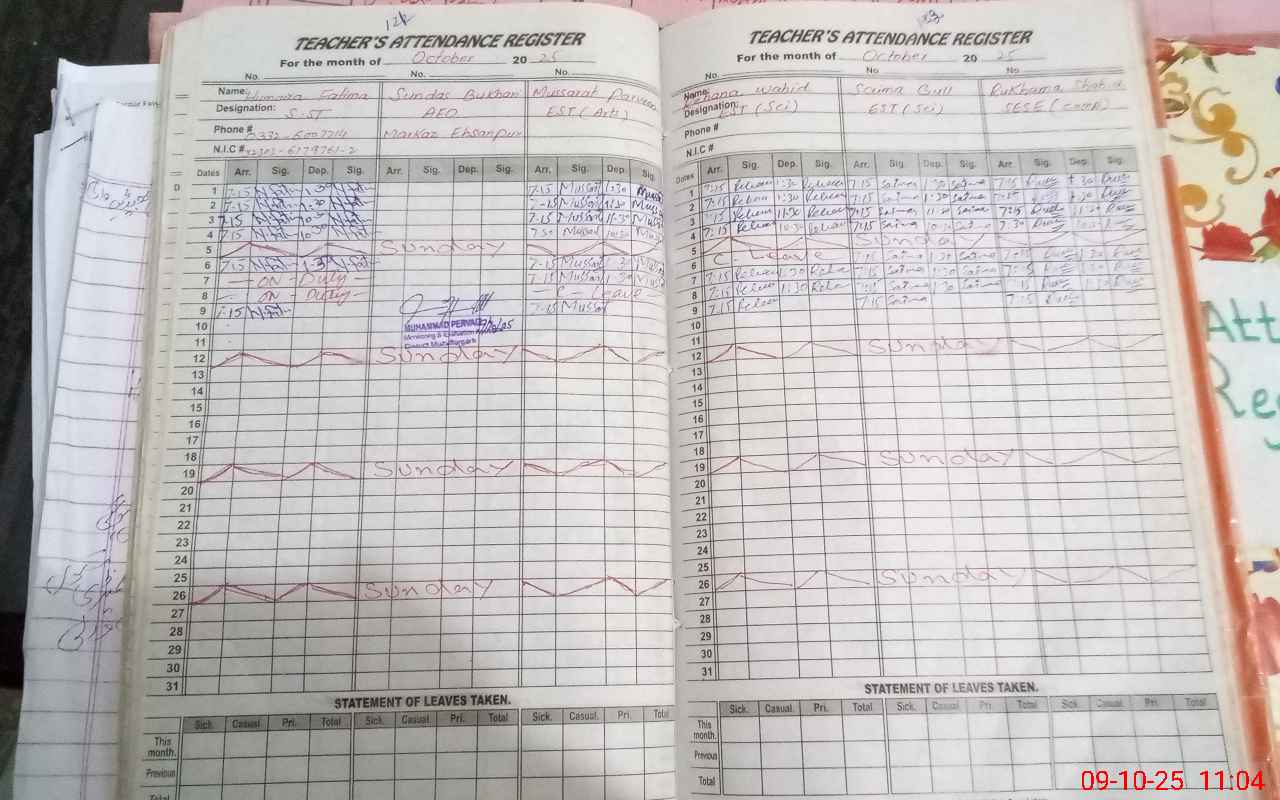 124
TEACHER'S ATTENDANCE REGISTER
For the month of October 20 25
No. No. No.
Name: Humaira Fatima Sundas Bukhari Mussarat Parveen
Designation: S.ST AEO EST (Arts)
Phone # 0332-6007214 Markaz Ehsanpur
N.I.C #
Dates Arr. Sig. Dep. Sig. Arr. Sig. Dep. Sig. Arr. Sig. Dep. Sig.
1 7-15 1:30 7-15 Mussar 1:30 Mussar
2 7-15 1:30 7-15 Mussar 1:30 Mussar
3 7-15 7-15 Mussar 11:30 Mussar
4 7-15 10:30 7:30 Mussar 10:30 Mussar
5 Sunday
6 7-15 1:30 7-15 Mussar 1:30 Mussar
7 ON - Duty 7-15 Mussar 1:30 Mussar
8 ON - Duty Leave
9 7-15 7-15 Mussar
MUHAMMAD PERVAIZ
Monitoring & Evaluation
District Muzaffargarh
10
11
12 Sunday
13
14
15
16
17
18
19 Sunday
20
21
22
23
24
25
26 Sunday
27
28
29
30
31
STATEMENT OF LEAVES TAKEN.
Sick. Casual. Pri. Total Sick. Casual. Pri. Total Sick. Casual. Pri. Total
This month.
Previous
Total
TEACHER'S ATTENDANCE REGISTER
For the month of October 20 25
No. No No.
Name: Rehana Wahid Saima Gull Rukhama Shahid
Designation: EST (Sci) EST (Sci) SESE (comp)
Phone #
N.I.C #
Dates Arr. Sig. Dep. Sig. Arr. Sig. Dep. Sig. Arr. Sig. Dep. Sig.
1 7:15 Rehan 1:30 Rehana 7:15 Saima 1:30 Saima 7:15 1:30
2 7:15 Rehan 1:30 Rehana 7:15 Saima 1:30 Saima 7:15 1:30
3 7:15 Rehan 11:30 Rehana 7:15 Saima 11:30 Saima 7:15 11:30
4 7:15 Rehan 10:30 Rehana 7:15 Saima 10:30 Saima 7:30 10:30
5 Sunday
6 C - Leave 7:15 Saima 1:30 Saima 7:15 1:30
7 7:15 Rehan 1:30 Reha 7:15 Saima 1:30 Saima 7:15 1:30
8 7:15 Rehan 1:30 Reha 7:15 Saima 1:30 Saima 7:15 1:30
9 7:15 Rehan 7:15 Saima 7:15
10
11
12 Sunday
13
14
15
16
17
18
19 Sunday
20
21
22
23
24
25
26 Sunday
27
28
29
30
31
STATEMENT OF LEAVES TAKEN.
Sick. Casual. Pri. Total Sick. Casual. Pri. Total Sick Casual. Pri. Total
This month.
Previous
Total
09-10-25 11:04